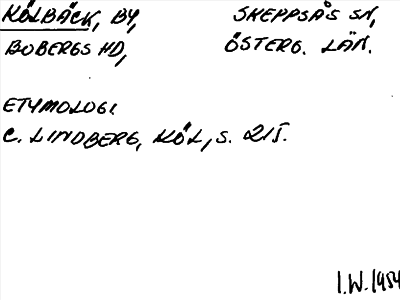 KÖLBÄCK, BY, SKEPPSÅS SN,
BOBERGS HD, ÖSTERG. LÄN.
ETYMOLOGI.
C. LINDBERG, KÖL, S. 21f.
I.W. 1954